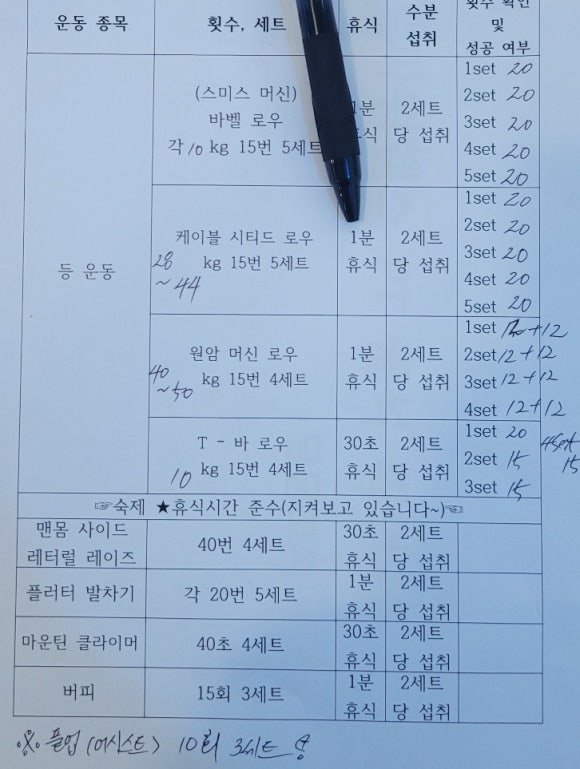 운동 종목 횟수, 세트 휴식 수분 섭취 횟수 확인 및 성공 여부
등 운동
(스미스 머신)
바벨 로우
각 10 kg 15번 5세트
1분
휴식
2세트
당 섭취
1set 20
2set 20
3set 20
4set 20
5set 20
케이블 시티드 로우
28 ~44 kg 15번 5세트
1분
휴식
2세트
당 섭취
1set 20
2set 20
3set 20
4set 20
5set 20
원암 머신 로우
40 ~50 kg 15번 4세트
1분
휴식
2세트
당 섭취
1set +12
2set 12+12
3set 12+12
4set 12+12
T - 바 로우
10 kg 15번 4세트
30초
휴식
2세트
당 섭취
1set 20
2set 15
3set 15
4set
15
☞숙제 ★휴식시간 준수(지켜보고 있습니다~)☜
맨몸 사이드
레터럴 레이즈
40번 4세트
30초
휴식
2세트
당 섭취
플러터 발차기
각 20번 5세트
1분
휴식
2세트
당 섭취
마운틴 클라이머
40초 4세트
30초
휴식
2세트
당 섭취
버피
15회 3세트
1분
휴식
2세트
당 섭취
※ 풀업 (어시스트) 10회 3세트